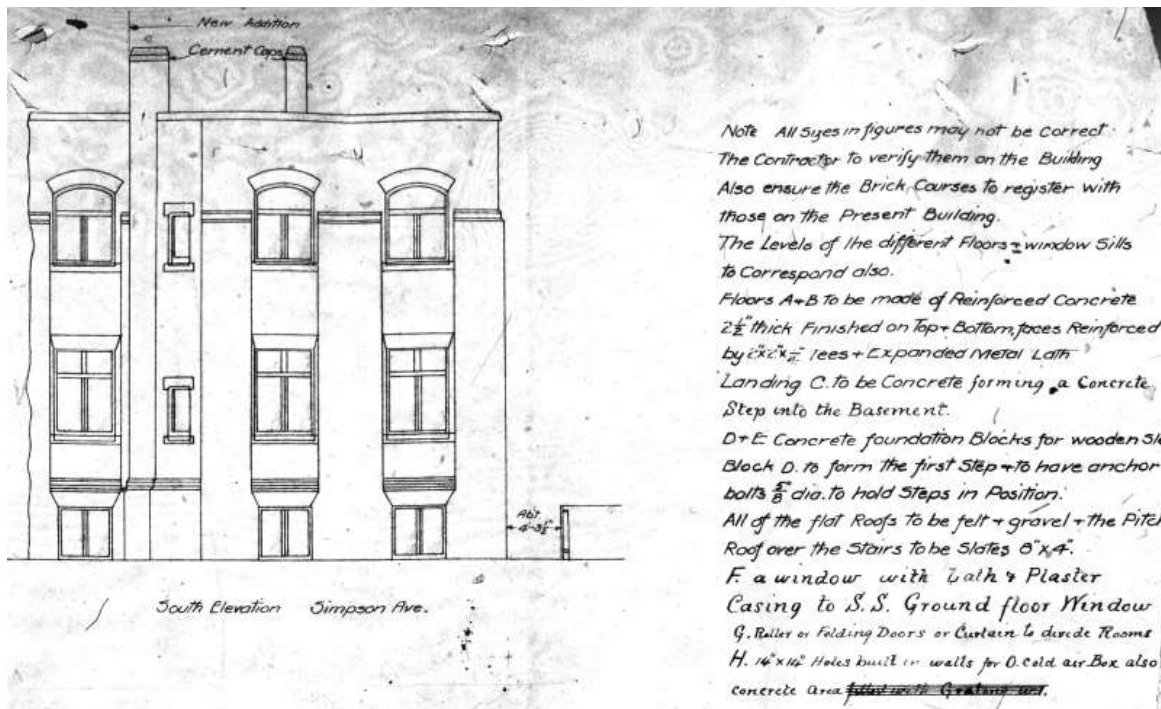 New Addition
Cement Caps
Abt
4'-3½"
South Elevation Simpson Ave.
Note All Sizes in figures may not be correct
The Contractor to verify them on the Building
Also ensure the Brick Courses to register with
those on the Present Building.
The Levels of the different Floors + window Sills
to Correspond also.
Floors A+B to be made of Reinforced Concrete
2½" thick Finished on Top + Bottom, faces Reinforced
by Tees + Expanded Metal Lath
Landing C. to be Concrete forming a Concrete
Step into the Basement.
D+E Concrete foundation Blocks for wooden
Block D. to form the first Step + to have anchor
bolts 5/8" dia. to hold Steps in Position.
All of the flat Roofs to be felt + gravel + the Pitch
Roof over the Stairs to be Slates 8"x4".
F. a window with Lath & Plaster
Casing to S.S. Ground floor Window
G. Roller or Folding Doors or Curtain to divide Rooms
H. 14"x14" Holes built in walls for O. cold air Box also
concrete area filled with Grating